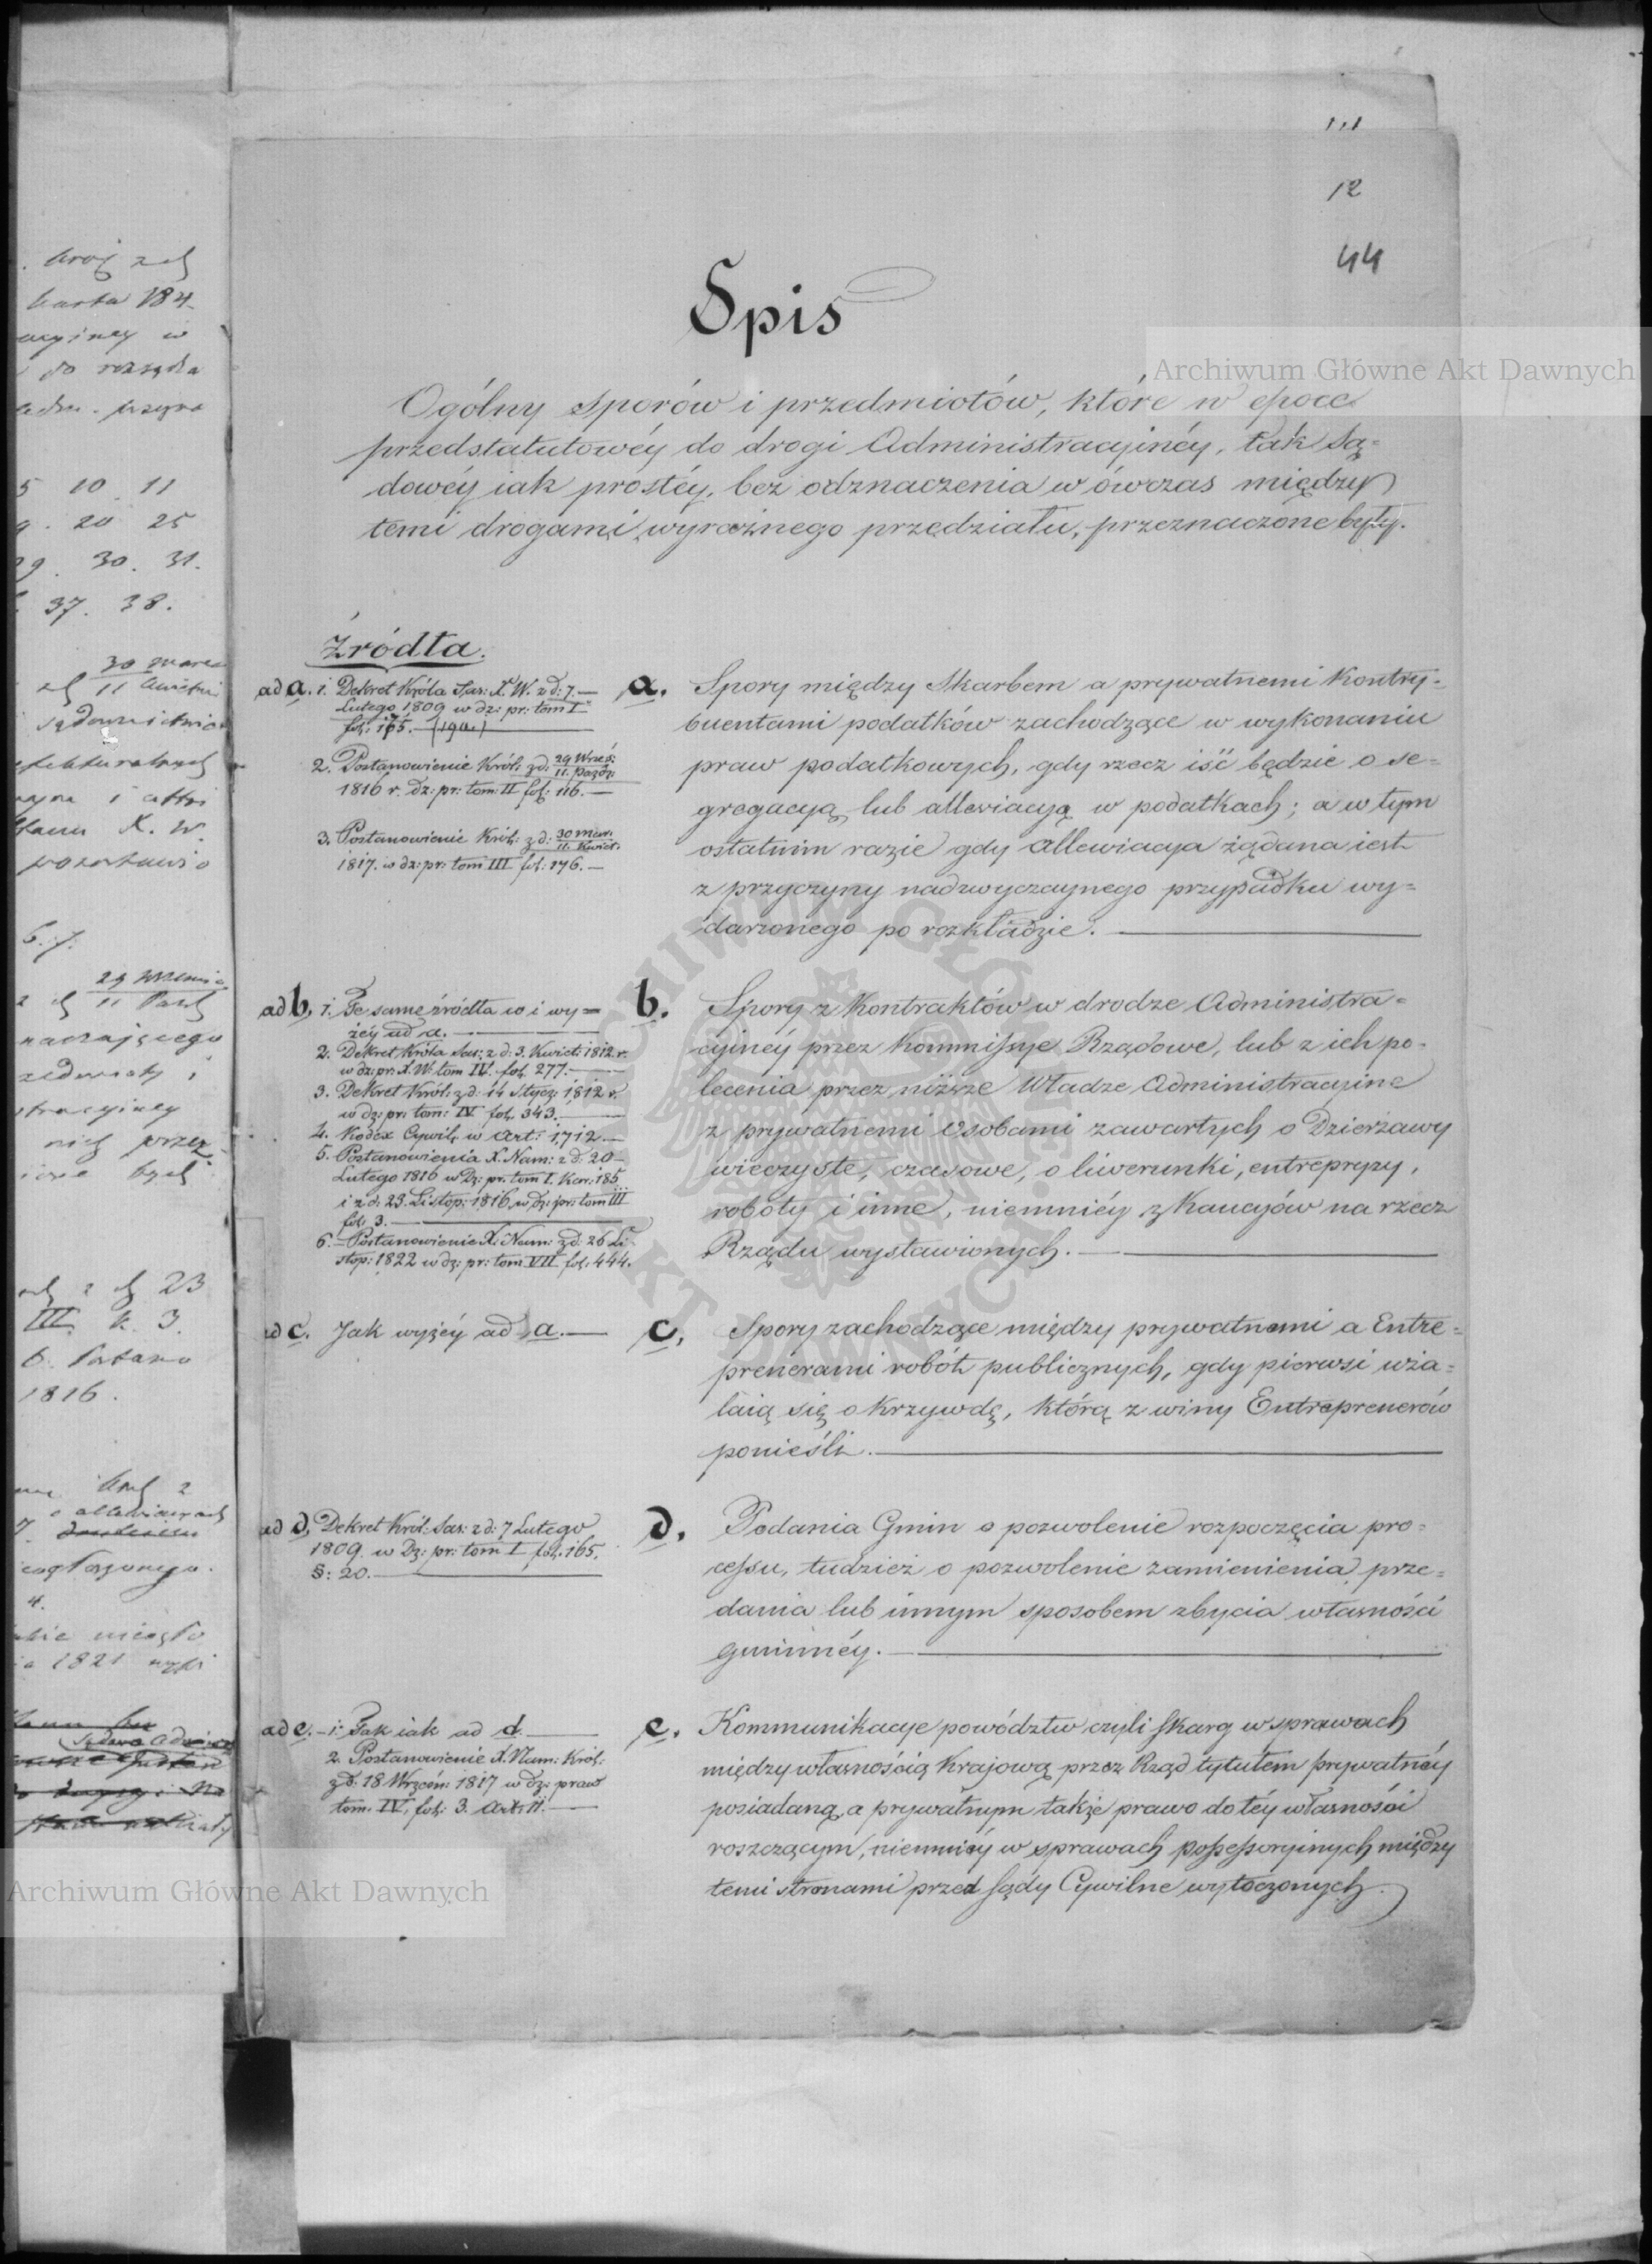 12
44
Spis
Ogólny sporów i przedmiotów, które w epoce
przedstatutowéy do drogi Administracyinéy, tak Są=
dowéy iak prostéy, bez odznaczenia w ówczas między
temi drogami wyraźnego przedziału, przeznaczone były.
Źródła.
ad a. 1. Dekret Króla Sas: X. W. z d: 7.—
Lutego 1809 w dz: pr: tom I
fol: 165. — (19a.)
2. Postanowienie Król: z d: 29 Wrześ:
11. Paźdz:
1816 r. dz: pr: tom: II fol: 116. —
3. Postanowienie Król: z d: 30 Mar:
11. Kwiet.
1817. w dz: pr: tom III fol: 176. —
a. Spory między Skarbem a prywatnemi Kontry=
buentami podatków zachodzące w wykonaniu
praw podatkowych, gdy rzecz iść będzie o se=
gregacyą lub allewiacyą w podatkach; a w tym
ostatnim razie gdy allewiacya żądana iest
z przyczyny nadzwyczaynego przypadku wy=
darzonego po rozkładzie.
ad b. 1. Te same źródła co i wy=
żéy ad a.
2. Dekret Króla Sas: z d: 3. Kwiet: 1812 r.
w dz: pr: X. W. tom IV. fol. 277.
3. Dekret Król: z d: 14 Stycz: 1812 r.
w dz: pr: tom: IV fol. 343.
4. Kodex Cywil: w Art: 1712.—
5. Postanowienia X. Nam: z d: 20—
Lutego 1816 w Dz: pr. tom I. Kar: 185
i z d: 23. Listop: 1816 w dz: pr: tom III
fol. 3.
6. Postanowienie X. Nam: z d: 26 Li
stop: 1822 w dz: pr: tom VII fol. 444.
b. Spory z Kontraktów w drodze Administra=
cyinéy przez Kommissye Rządowe, lub z ich po=
lecenia przez niższe Władze Administracyine
z prywatnemi Osobami zawartych o Dzierżawy
wieczyste, czasowe, o liwerunki, entrepryzy,
roboty i inne, niemniéy z Kaucyów na rzecz
Rządu wystawionych.
ad c. Jak wyżéy ad a.
c. Spory zachodzące między prywatnemi a Entre=
prenerami robót publicznych, gdy pierwsi uża=
laią się o krzywdę, którą z winy Entreprenerów
ponieśli.
ad d. Dekret Król: Sas: z d: 7 Lutego
1809. w Dz: pr: tom I fol. 165.
§: 20.
d. Podania Gmin o pozwolenie rozpoczęcia pro=
cessu, tudzież o pozwolenie zamienienia, prze=
dania lub innym sposobem zbycia własności
gminnéy.
ad e. 1. Tak iak ad d.
2. Postanowienie X. Nam: Król:
z d: 18 Wrześn: 1817 w dz: praw
tom. IV, fol: 3. Art: 11.
e. Kommunikacye powództw czyli skarg w sprawach
między własnością Kraiową przez Rząd tytułem prywatnéy
posiadaną, a prywatnym także prawo do téy własności
roszczącym, niemniéy w sprawach possessoryinych między
temi stronami przed sądy Cywilne wytoczonych.
5 10 11
20 25
30. 31.
37. 38.
30 marca
11
K. W.
6. 7.
11
23
III k. 3.
1816.
1821
Archiwum Główne Akt Dawnych
Archiwum Główne Akt Dawnych
ARCHIWUM GŁÓWNE AKT DAWNYCH